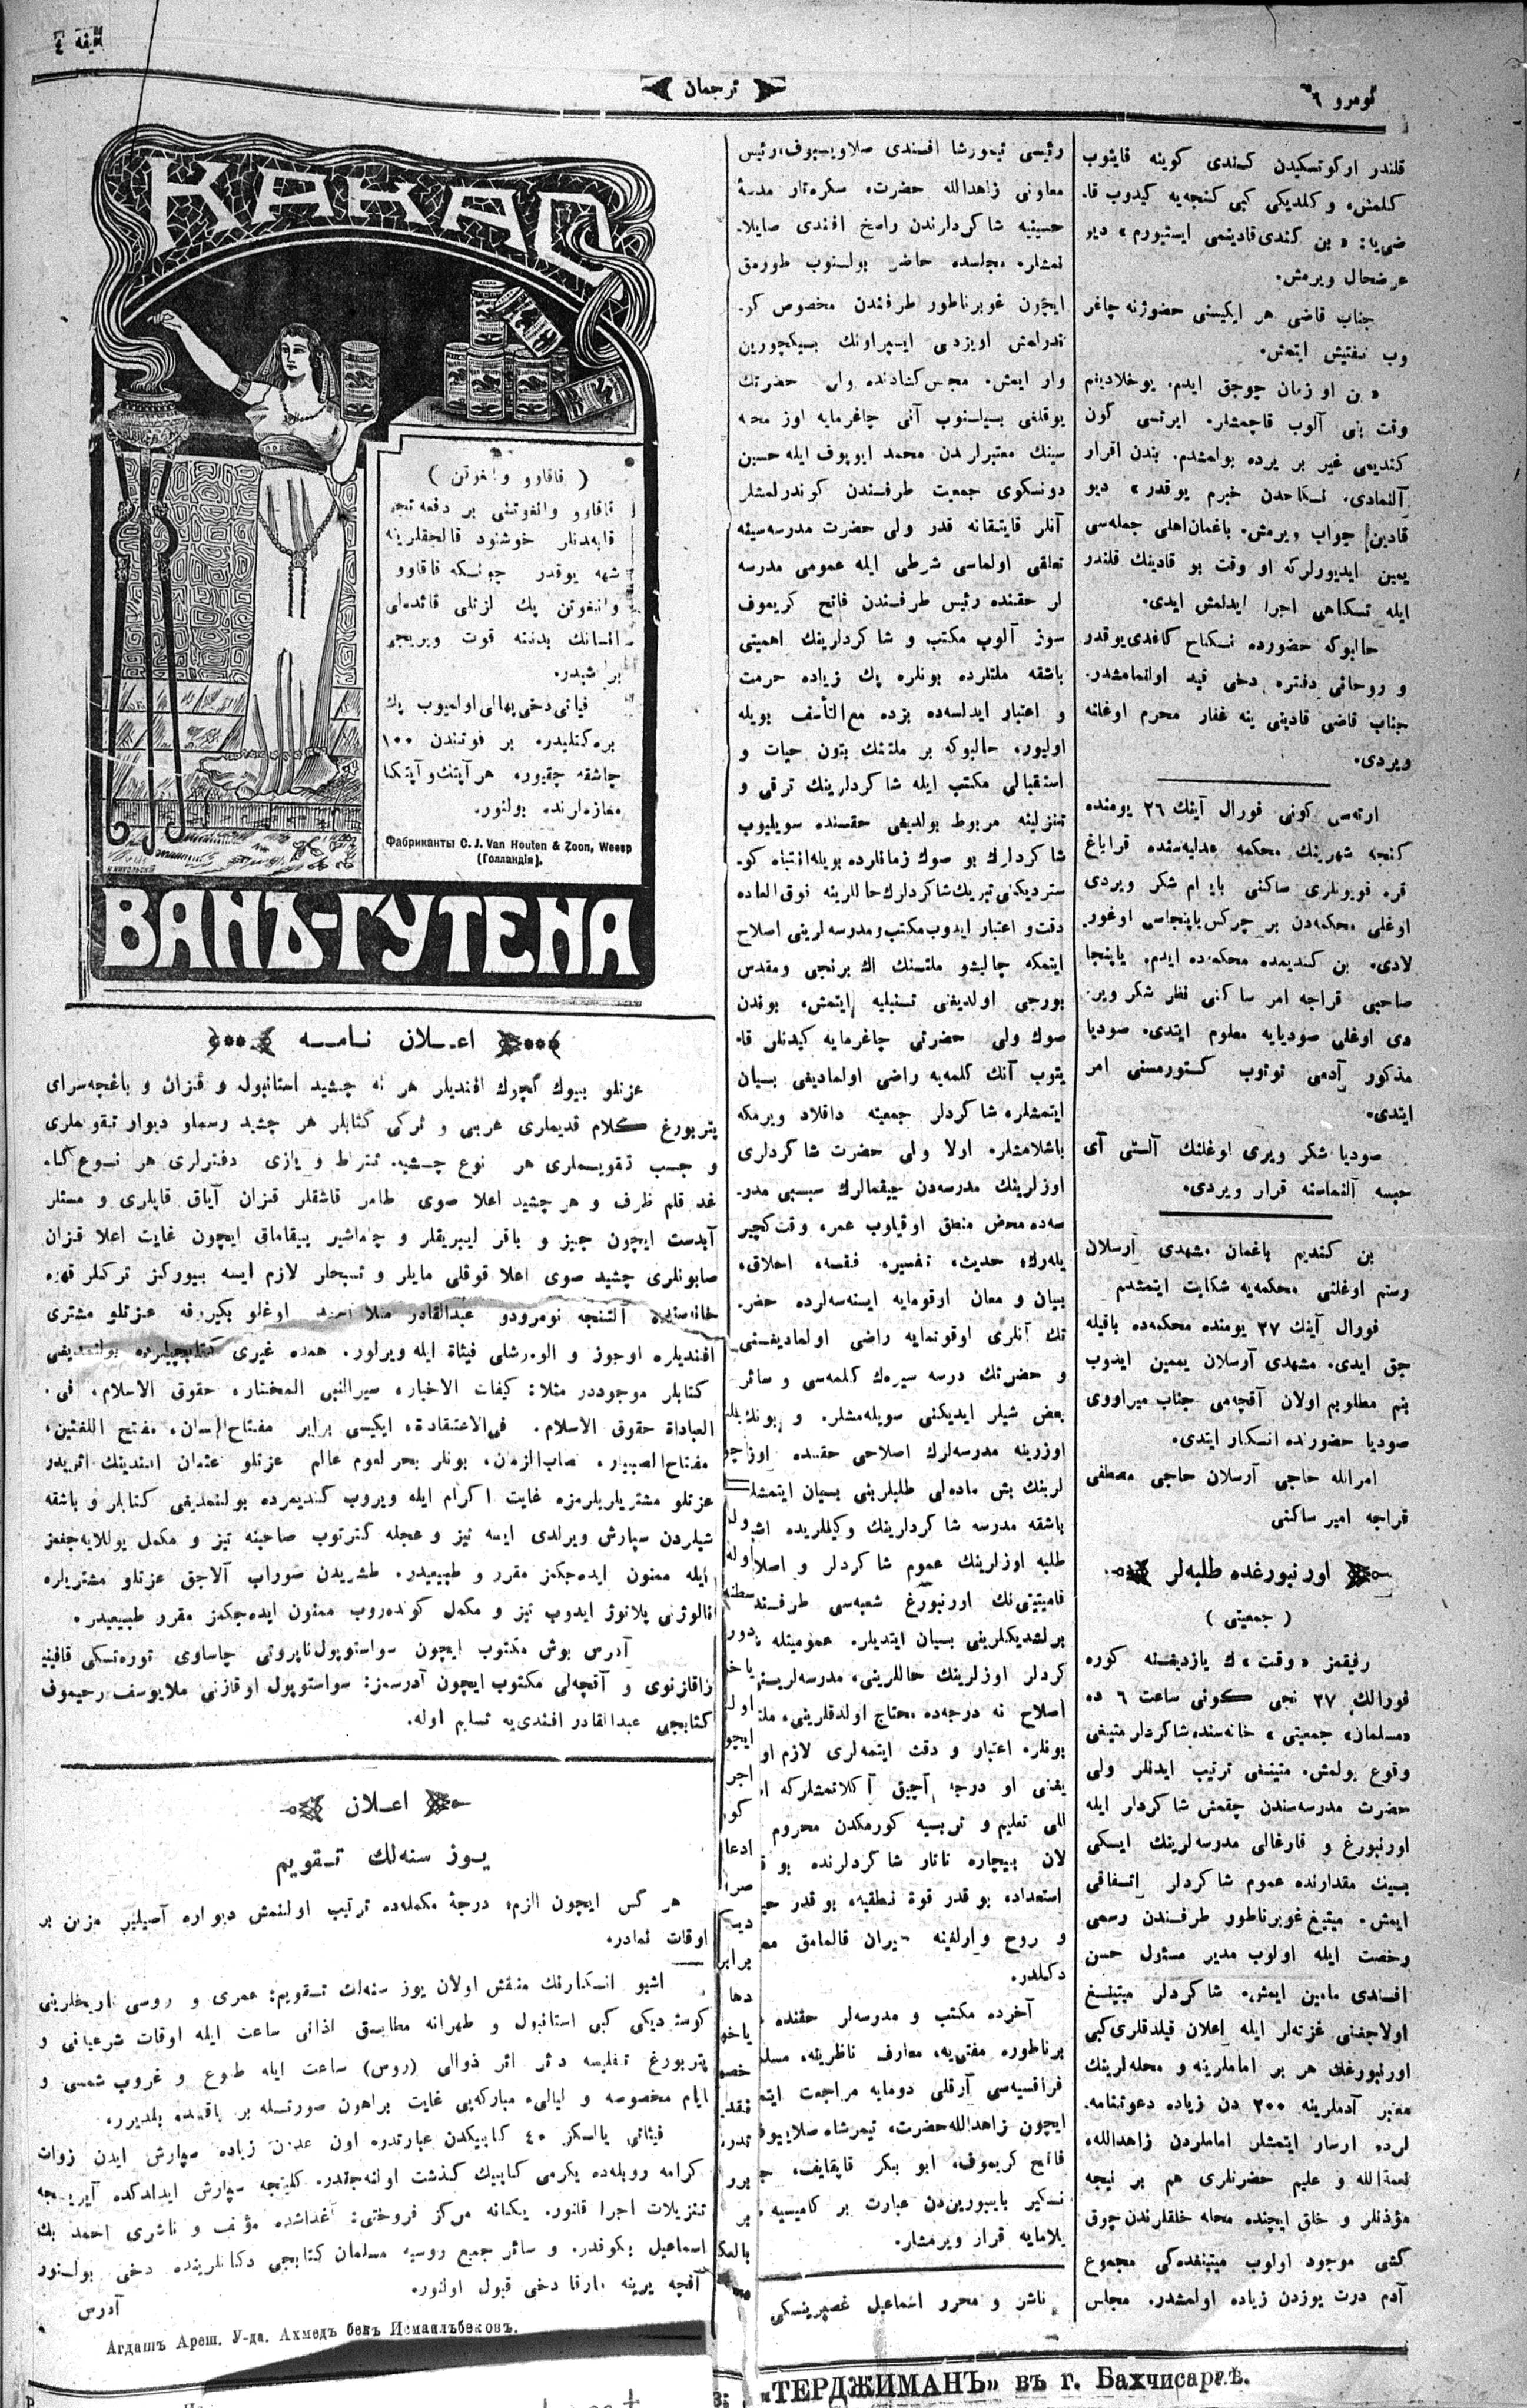 نومرو ٦
ترجمان
قلندر اوكوتسكيدن كندى كوينه قايتوب
كلمش، و كلديكى كبى كنجه‌يه كيدوب قا-
ضى‌يا: «بن كندى قادينمى ايستيورم» ديو
عرضحال ويرمش.
جناب قاضى هر ايكيسنى حضورنه چاغر
وب تفتيش ايتمش.
«بن او زمان چوجق ايدم. يوخلاديغم
وقت بنى آلوب قاچمشلر. ايرتسى كون
كنديمى غير بر يرده بولمشدم. بندن اقرار
آلنمادى. نكاحدن خبرم يوقدر» ديو
قادين جواب ويرمش. باغمان اهلى جمله‌سى
يمين ايديورلركه او وقت بو قادينك قلندر
ايله نكاهى اجرا ايدلمش ايدى.
حالبوكه حضورده نكاح كاغدى يوقدر
و روحانى دفتره دخى قيد اولنمامشدر.
جناب قاضى قادينى ينه غفار محرم اوغلنه
ويردى.
ارته‌سى كونى فورال آينك ٢٦ يومنده
كنجه شهرينك محكمه عدليه‌سنده قراباغ
قره قويونلرى ساكنى بايرام شكر ويردى
اوغلى محكمه‌دن بر چركس ياپنجاسى اوغور
لادى. بن كنديمده محكمه‌ده ايدم. ياپنجا
صاحبى قراجه امر ساكنى نظر شكر وير-
دى اوغلى صوديايه معلوم ايتدى. صوديا
مذكور آدمى توتوب كتورمسنى امر
ايتدى.
صوديا شكر ويرى اوغلنك آلتى آى
حبسه آلنماسنه قرار ويردى.
بن كنديم باغمان مشهدى آرسلان
رستم اوغلنى محكمه‌يه شكايت ايتمشدم
فورال آينك ٢٧ يومنده محكمه‌ده باقيله
جق ايدى. مشهدى آرسلان يمين ايدوب
بنم مطلوبم اولان آقچه‌مى جناب ميراووى
صوديا حضورنده انكار ايتدى.
امرالله حاجى آرسلان حاجى مصطفى
قراجه امير ساكنى
اورنبورغده طلبه‌لر
( جمعيتى )
رفيقمز «وقت» ك يازديغنه كوره
فورالك ٢٧ نجى كونى ساعت ٦ ده
«مسلمان» جمعيتى» خانه‌سنده شاكردلر متيغى
وقوع بولمش. متينغى ترتيب ايدنلر ولى
حضرت مدرسه‌سندن چقمش شاكردلر ايله
اورنبورغ و قارغالى مدرسه‌لرينك ايكى
بيك مقدارنده عموم شاكردلر اتفاقى
ايمش. ميتيغ غوبرناطور طرفندن رسمى
رخصت ايله اولوب مدير مسئول حسن
افندى مامين ايمش. شاكردلر ميتينغ
اولاجغنى غزته‌لر ايله اعلان قيلدقلرى كبى
اورنبورغك هر بر اماملرينه و محله‌لرينك
معتبر آدملرينه ٢٠٠ دن زياده دعوتنامه-
لرده ارسار ايتمشلر. اماملردن زاهدالله،
نعمةالله و عليم حضرتلرى هم بر نيچه
مؤذنلر و خلق ايچنده محله خلقلرندن چوق
كشى موجود اولوب ميتينغده‌كى مجموع
آدم درت يوزدن زياده اولمشدر. مجلس
رئيسى تيمورشا افندى صلاويوف، رئيس
معاونى زاهدالله حضرت، سكره‌تار مدسهٔ
حسينيه شاكردلرندن راسخ افندى صايلا-
نمشلر. مجلسده حاضر بولنوب طورمق
ايچون غوبرناطور طرفندن مخصوص كو-
ندرلمش اويزدى ايسپراونك بيكچورين
وار ايمش. مجلس كشادنده ولى حضرتك
يوقلغى بيلنوب آنى چاغرمايه اوز محله
سينك معتبرلرندن محمد ايوبوف ايله حسين
دونسكوى جمعيت طرفندن كوندرلمشلر
آنلر قايتقانه قدر ولى حضرت مدرسه‌سينه
تعلقى اولماسى شرطى ايله عمومى مدرسه
لر حقنده رئيس طرفندن فاتح كريموف
سوز آلوب مكتب و شاكردلرينك اهميتى
باشقه ملتلرده بونلره پك زياده حرمت
و اعتبار ايدلسه‌ده بزده مع التأسف بويله
اوليور، حالبوكه بر ملتنك بتون حيات و
استقبالى مكتب ايله شاكردلرينك ترقى و
تنزلينه مربوط بولديغى حقنده سويليوب
شاكردلرك بو صوك زمانلرده بويله انتباه كو-
سترديكنى تبريك شاكردلرك حاللرينه فوق العاده
دقت و اعتبار ايدوب مكتب و مدرسه‌لرينى اصلاح
ايتمكه چاليشو ملتنك اك برنجى و مقدس
بورجى اولديغنى تنبليه ايتمش. بوندن
صوك ولى حضرتى چاغرمايه كيدنلر قا-
يتوب آنك كلمه‌يه راضى اولماديغى بيان
ايتمشلر. شاكردلر جمعيته داقلاد ويرمكه
باشلامشلر. اولا ولى حضرت شاكردلرى
اوزلرينك مدرسه‌دن چيقمالرك سببى مدر-
سه‌ده محض منطق اوقياوب عمر، وقت كچير
يله‌رك، حديث، تفسير، فقه، اخلاق،
بيان و معان اوقومايه ايسته‌سه‌لرده حضر-
تك آنلرى اوقوتمايه راضى اولماديغنى
و حضرتك درسه سيرك كلمه‌سى و سائر
بعض شيلر ايديكنى سويله‌مشلر.
اوزرينه مدرسه‌لرك اصلاحى حقنده
لرينك بش ماده‌لى طلبلرينى بيان ايتمشلر
باشقه مدرسه شاكردلرينك وكيللريده
طلبه اوزلرينك عموم شاكردلر و اصلا
قاميتيتى‌نك اورنبورغ شعبه‌سى طرفند
برلشديكلرينى بيان ايتديلر. عموميتله
كردلر اوزلرينك حاللرينى، مدرسه‌لرينـ
اصلاح نه درجه‌ده محتاج اولدقلرينى،
بونلره اعتبار و دقت ايتمه‌لرى لازم او
يغنى او درجه آچيق آكلاتمشلركه
اللى تعليم و تربيه كورمكدن محروم
لان بيچاره تاتار شاكردلرنده بو
استعداد، بو قدر قوة نطقيه، بو قدر
و روح وارلغينه حيران قالمامق
دكلدر.
آخرده مكتب و مدرسه‌لر حقنده
برناطوره، مفتى‌يه، معارف ناظرينه،
فراقسيه‌سى آرقلى دومايه مراجعت
ايچون زاهدالله حضرت، تيمرشاه صلاييوف
فاتح كريموف، ابو بكر قاپقايف،
عبارت بر كاميسيه
يلامايه قرار ويرمشلر.
ناشر و محرر اسماعيل غصپرينسكى
КАКАО
( قاقاوو وانغوتن )
قاقاوو وانغوتنى بر دفعه تجر
قابه‌دنلر خوشنود قالجقلرينه
شبهه يوقدر چونكه قاقاوو
وانغوتن پك لزتلى فائده‌لى
انسانك بدننه قوت ويريجى
بر شيدر.
فيأتى دخى بهالى اولميوب پك
بره‌كتليدر. بر فوتندن ١٠٠
چاشقه چقيور، هر آپتك و آپتكا
مغازه‌لرنده بولنور.
Фабриканты C. J. Van Houten & Zoon, Weesp
(Голландія).
ВАНЪ-ГУТЕНА
اعلان نامه
عزتلو بيوك كچوك افنديلر هر نه چشيد استانبول و قزان و باغچه‌سراى
پتربورغ كلام قديملرى عربى و تركى كتابلر هر چشيد رسملو ديوار تقويملرى
و جيب تقويملرى هر نوع چشيد و يازى دفترلرى هر نوع كا-
غد قلم ظرف و هر چشيد اعلا صوى طاهر قاشقلر قزان آياق قاپلرى و مستلر
آبدست ايچون جيز و باقر ليبريقلر و چاماشير ييقاماق ايچون غايت اعلا قزان
صابونلرى چشيد صوى اعلا قوقلى مايلر و تسبحلر لازم ايسه بيوركز تركلر قهوه
خانه‌سنده آلتنجه نومرودو عبدالقادر منلا اوغلو عزتلو مشترى
افنديلره اوجوز و الويرشلى فيئاة ايله ويرلور. همده غيرى كتابچيلرده بولنمديغى
كتابلر موجوددر مثلا: كيفات الاخبار، سيرالنبى المختار، حقوق الاسلام، فى-
العباداة حقوق الاسلام. فى الاعتقادة، ايكيسى برابر مفتاح اللسان، مفتح اللغتين،
مفتاح الصبيان، نصاب الزمان، بونلر بحر لعوم عالم عزتلو عثمان افندينك اثريدر
عزتلو مشتريلريلرمزه غايت اكرام ايله ويروب كنديمزده بولنمديغى كتابلر و باشقه
شيلردن سپارش ويرلدى ايسه تيز و عجله كترتوب صاحبنه تيز و مكمل يوللايه‌جغمز
ايله ممنون ايده‌جكمز مقرر و طبيعيدر. طشريدن صوراب آلاجق عزتلو مشتريلره
نالوژنى پلاتوژ ايدوب تيز و مكمل كونده‌روب ممنون ايده‌جكمز مقرر طبيعيدر.
آدرس بوش مكتوب ايچون سواستوپول ناپروتى چاساوى توره‌تسكى قافينى
زاقازنوى و آقچه‌لى مكتوب ايچون آدرسمز: سواستوپول اوقازنى ملا يوسف رحيموف
كتابجى عبدالقادر افندى‌يه تسليم اوله.
اعلان
يوز سنه‌لك تقويم
هر كس ايچون الزم، درجهٔ مكمله‌ده ترتيب اولنمش ديواره آصيلير مزين بر
اوقات نمادر.
اشبو انسكارتك منقش اولان يوز سنه‌لك تقويم: قمرى و روسى تاريخلرينى
كوستـ ديكى كبى استانبول و طهرانه مطابق اذانى ساعت ايله اوقات شرعيه‌نى و
پتربورغ تفليسه دئر اثر ذوالى (روس) ساعت ايله طلوع و غروب شمسى و
ايام مخصوصه و ليالىء مباركه‌يى غايت براهون صورتله بر باقيشده بلديرر.
فيئاتى يالكز ٤٠ كاپيكدن عبارتدر، اون عددن زياده سپارش ايدن ذوات
كرامه روبله‌ده يكرمى كاپيك كذشت اولنه‌جقدر. كليتجه سپارش ايدلدكده آيريجه
تنزيلات اجرا قلنور. يكانه مركز فروختى: آغداشده مؤلف و ناشرى احمد بك
اسماعيل بكوفدر. و سائر جميع روسيه مسلمان كتابجى دكانلرينده دخى بولنور
آقچه يرينه مارقا دخى قبول اولنور.
آدرس
Агдашъ Ареш. У-да. Ахмедъ бекъ Исмаилъбековъ.
«ТЕРДЖИМАНЪ» въ г. Бахчисараѣ.